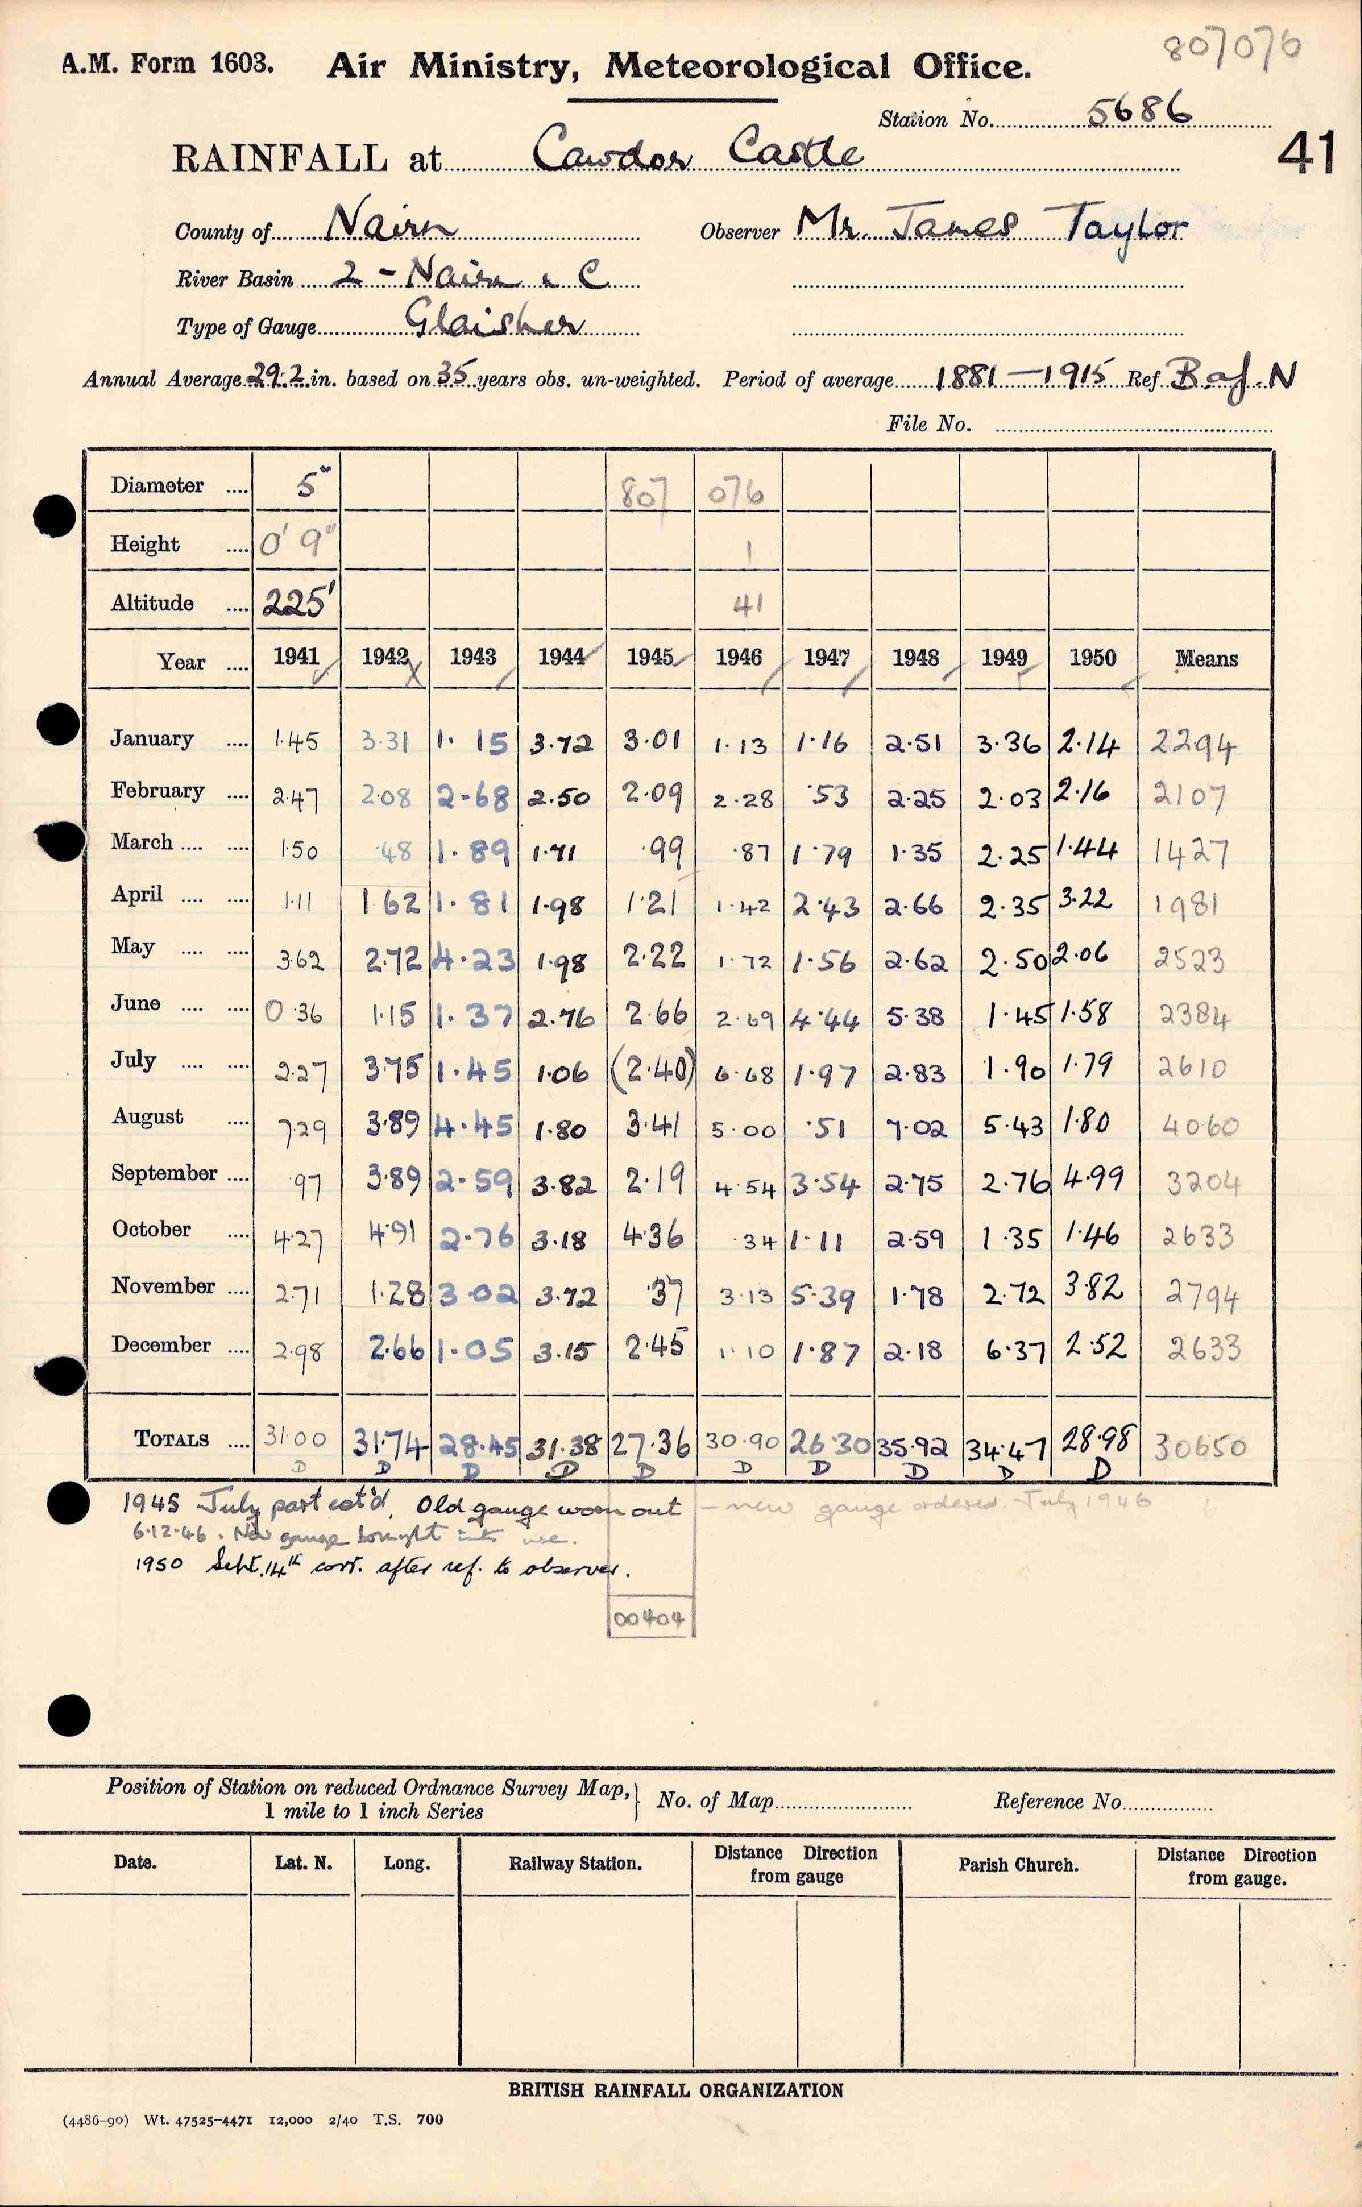 807076
A.M. Form 1603. Air Ministry, Meteorological Office.
Station No. 5686
RAINFALL at Cawdor Castle 41
County of Nairn Observer Mr. James Taylor
River Basin 2 - Nairn & C
Type of Gauge Glaisher
Annual Average 29.2 in. based on 35 years obs. un-weighted. Period of average 1881-1915 Ref. B of N
File No.
Diameter .... 5" 807 076
Height .... 0' 9" 1
Altitude .... 225' 41
Year .... 1941 1942 1943 1944 1945 1946 1947 1948 1949 1950 Means
January .... 1.45 3.31 1.15 3.72 3.01 1.13 1.16 2.51 3.36 2.14 2294
February .... 2.47 2.08 2.68 2.50 2.09 2.28 .53 2.25 2.03 2.16 2107
March .... .... 1.50 .48 1.89 1.71 .99 .87 1.79 1.35 2.25 1.44 1427
April .... .... 1.11 1.62 1.81 1.98 1.21 1.42 2.43 2.66 2.35 3.22 1981
May .... .... 3.62 2.72 4.23 1.98 2.22 1.72 1.56 2.62 2.50 2.06 2523
June .... .... 0.36 1.15 1.37 2.76 2.66 2.69 4.44 5.38 1.45 1.58 2384
July .... .... 2.27 3.75 1.45 1.06 (2.40) 6.68 1.97 2.83 1.90 1.79 2610
August .... 7.29 3.89 4.45 1.80 3.41 5.00 .51 7.02 5.43 1.80 4060
September .... .97 3.89 2.59 3.82 2.19 4.54 3.54 2.75 2.76 4.99 3204
October .... 4.27 4.91 2.76 3.18 4.36 .34 1.11 2.59 1.35 1.46 2633
November .... 2.71 1.28 3.02 3.72 .37 3.13 5.39 1.78 2.72 3.82 2794
December .... 2.98 2.66 1.05 3.15 2.45 1.10 1.87 2.18 6.37 2.52 2633
TOTALS .... 31.00 31.74 28.45 31.38 27.36 30.90 26.30 35.92 34.47 28.98 30650
D D D D D D D D D D
1945 July part est'd. Old gauge worn out - new gauge ordered July 1946
6.12.46. New gauge brought into use.
1950 Sept. 14th corr. after ref. to observer.
00404
Position of Station on reduced Ordnance Survey Map, 1 mile to 1 inch Series } No. of Map Reference No.
Date. Lat. N. Long. Railway Station. Distance Direction from gauge Parish Church. Distance Direction from gauge.
BRITISH RAINFALL ORGANIZATION
(4486-90) Wt. 47525-4471 12,000 2/40 T.S. 700